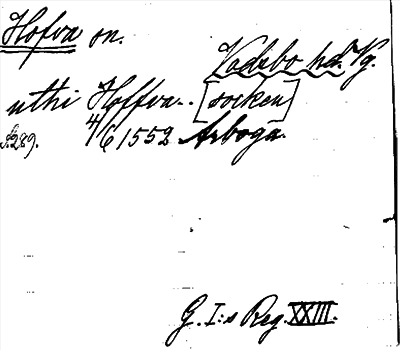 Hofva sn.
Vadsbo hd. Vg.
uthi Hoffva.. [socken]
S. 289. 4/6 1552 Arboga.
G. I:s Reg. XXIII.